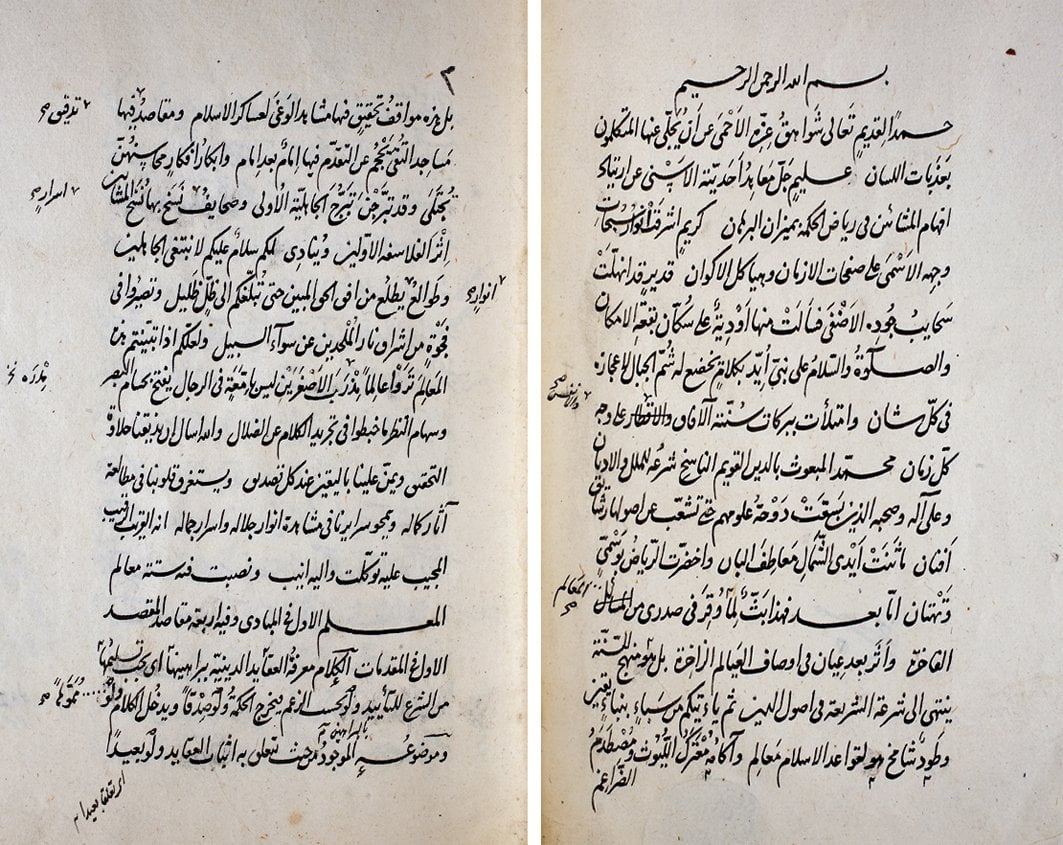 بسم الله الرحمن الرحيم
حمداً لقديم تعالى شواهق عزه الاحمى عن أن يتجلى عنها المتكلمون
بعذبات اللسان عليم جل معاهد أحديته الاسنى عن ارتياد
افهام المشائين فى رياض الحكمة بميزان البرهان كريم اشرقت انوار سبحات
وجهه الاسمى على صفحات الازمان وهياكل الاكوان قدير قد انهلت
سحايب جوده الاضفى فسالت منها أودية على سكان بقعة الامكان
والصلوة والسلام على نبى أيد بكلام يخضع له شم الجبال لاعجازه
فى كل شان وامتلأت ببركات سنته الآفاق والاقطار على وجه
والانفس صح
كل زمان محمد المبعوث بالدين القويم الناسخ شرعه للملل والاديان
وعلى آله وصحبه الذين بسقت دوحة علومهم حتى تشعب عن اصولها
افنان ما ثنت أيدى الشمال معاطف البان واخضرت الرياض بوسمى
وتهتان اما بعد فهذا بث لما وقر فى صدرى من المسائل
المعالم صح
الفاخرة وأثر بعد عيان فى اوصاف العيالم الزاخرة بل هو منهج للسنة
ينتهى الى شرعة الشريعة فى اصول الدين ثم ياتيكم من سبأ بنبأ يقين
وطود شامخ هو لقواعد الاسلام معالم وآكامه معترك الليوث ومصطدم
الضراغم
٢
بل هذه مواقف تحقيق فيها مشاهد الوغى لعساكر الاسلام ومقاصد فيها
تدقيق صح
مساجد التقى يتهجم عن التقدم فيها امام بعد امام وابكار افكار محاسنهن
تجتلى وقد تبرجن تبرج الجاهلية الاولى وصحايف نسخ بها نسخ المشائين
اسراره صح
اثر الفلاسفة الاولين وينادى لكم سلام عليكم لا نبتغى الجاهلين
وطوالع يطلع من افق الحق المبين حتى تبلغكم الى ظل ظليل وتصيروا فى
انواره صح
فجوة من اشراق نار الملحدين عن سواء السبيل ولعلكم اذا تبينتم هذه
المعالم تروا عالما بذرب الاصغرين ليس بامعة فى الرجال يفتح بحسام البصر
وسهام النظر ما خبطوا فى تجريد الكلام عن الضلال والله اسال ان يذيقنا حلاوة
التحقيق ويمن علينا باليقين عند كل تصديق ويستغرق قلوبنا فى مطالعة
آثار كماله ويمحو سرايرنا فى مشاهدة انوار جلاله واسرار جماله انه القريب
المجيب عليه توكلت واليه انيب ونصبت فيه ستة معالم
المعلم الاول فى المبادى وفيه اربعة مقاصد المقصد
الاول فى المقدمات الكلام معرفة العقايد الدينية ببراهينها اى يجب تسليمها
من الشرع للتأييد ولو بحسب الزعم فيخرج الحكمة ولو صدقا ويدخل الكلام ولو
وموضوعه الموجود من حيث تتعلق به اثبات العقايد ولو بعيدا
اى تعلقا بعيدا